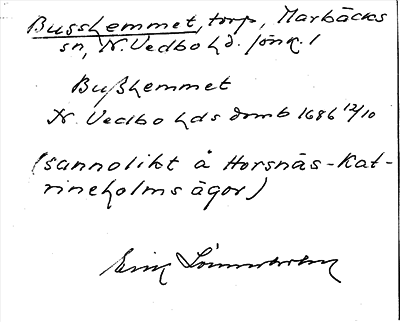 Busshemmet, torp, Marbäcks
sn, N. Vedbo hd. Jönk. l
Bußhemmet
N. Vedbo hds domb 1686 12/10
(sannolikt å Horsnäs-Kat-
rineholms ägor)
Erik